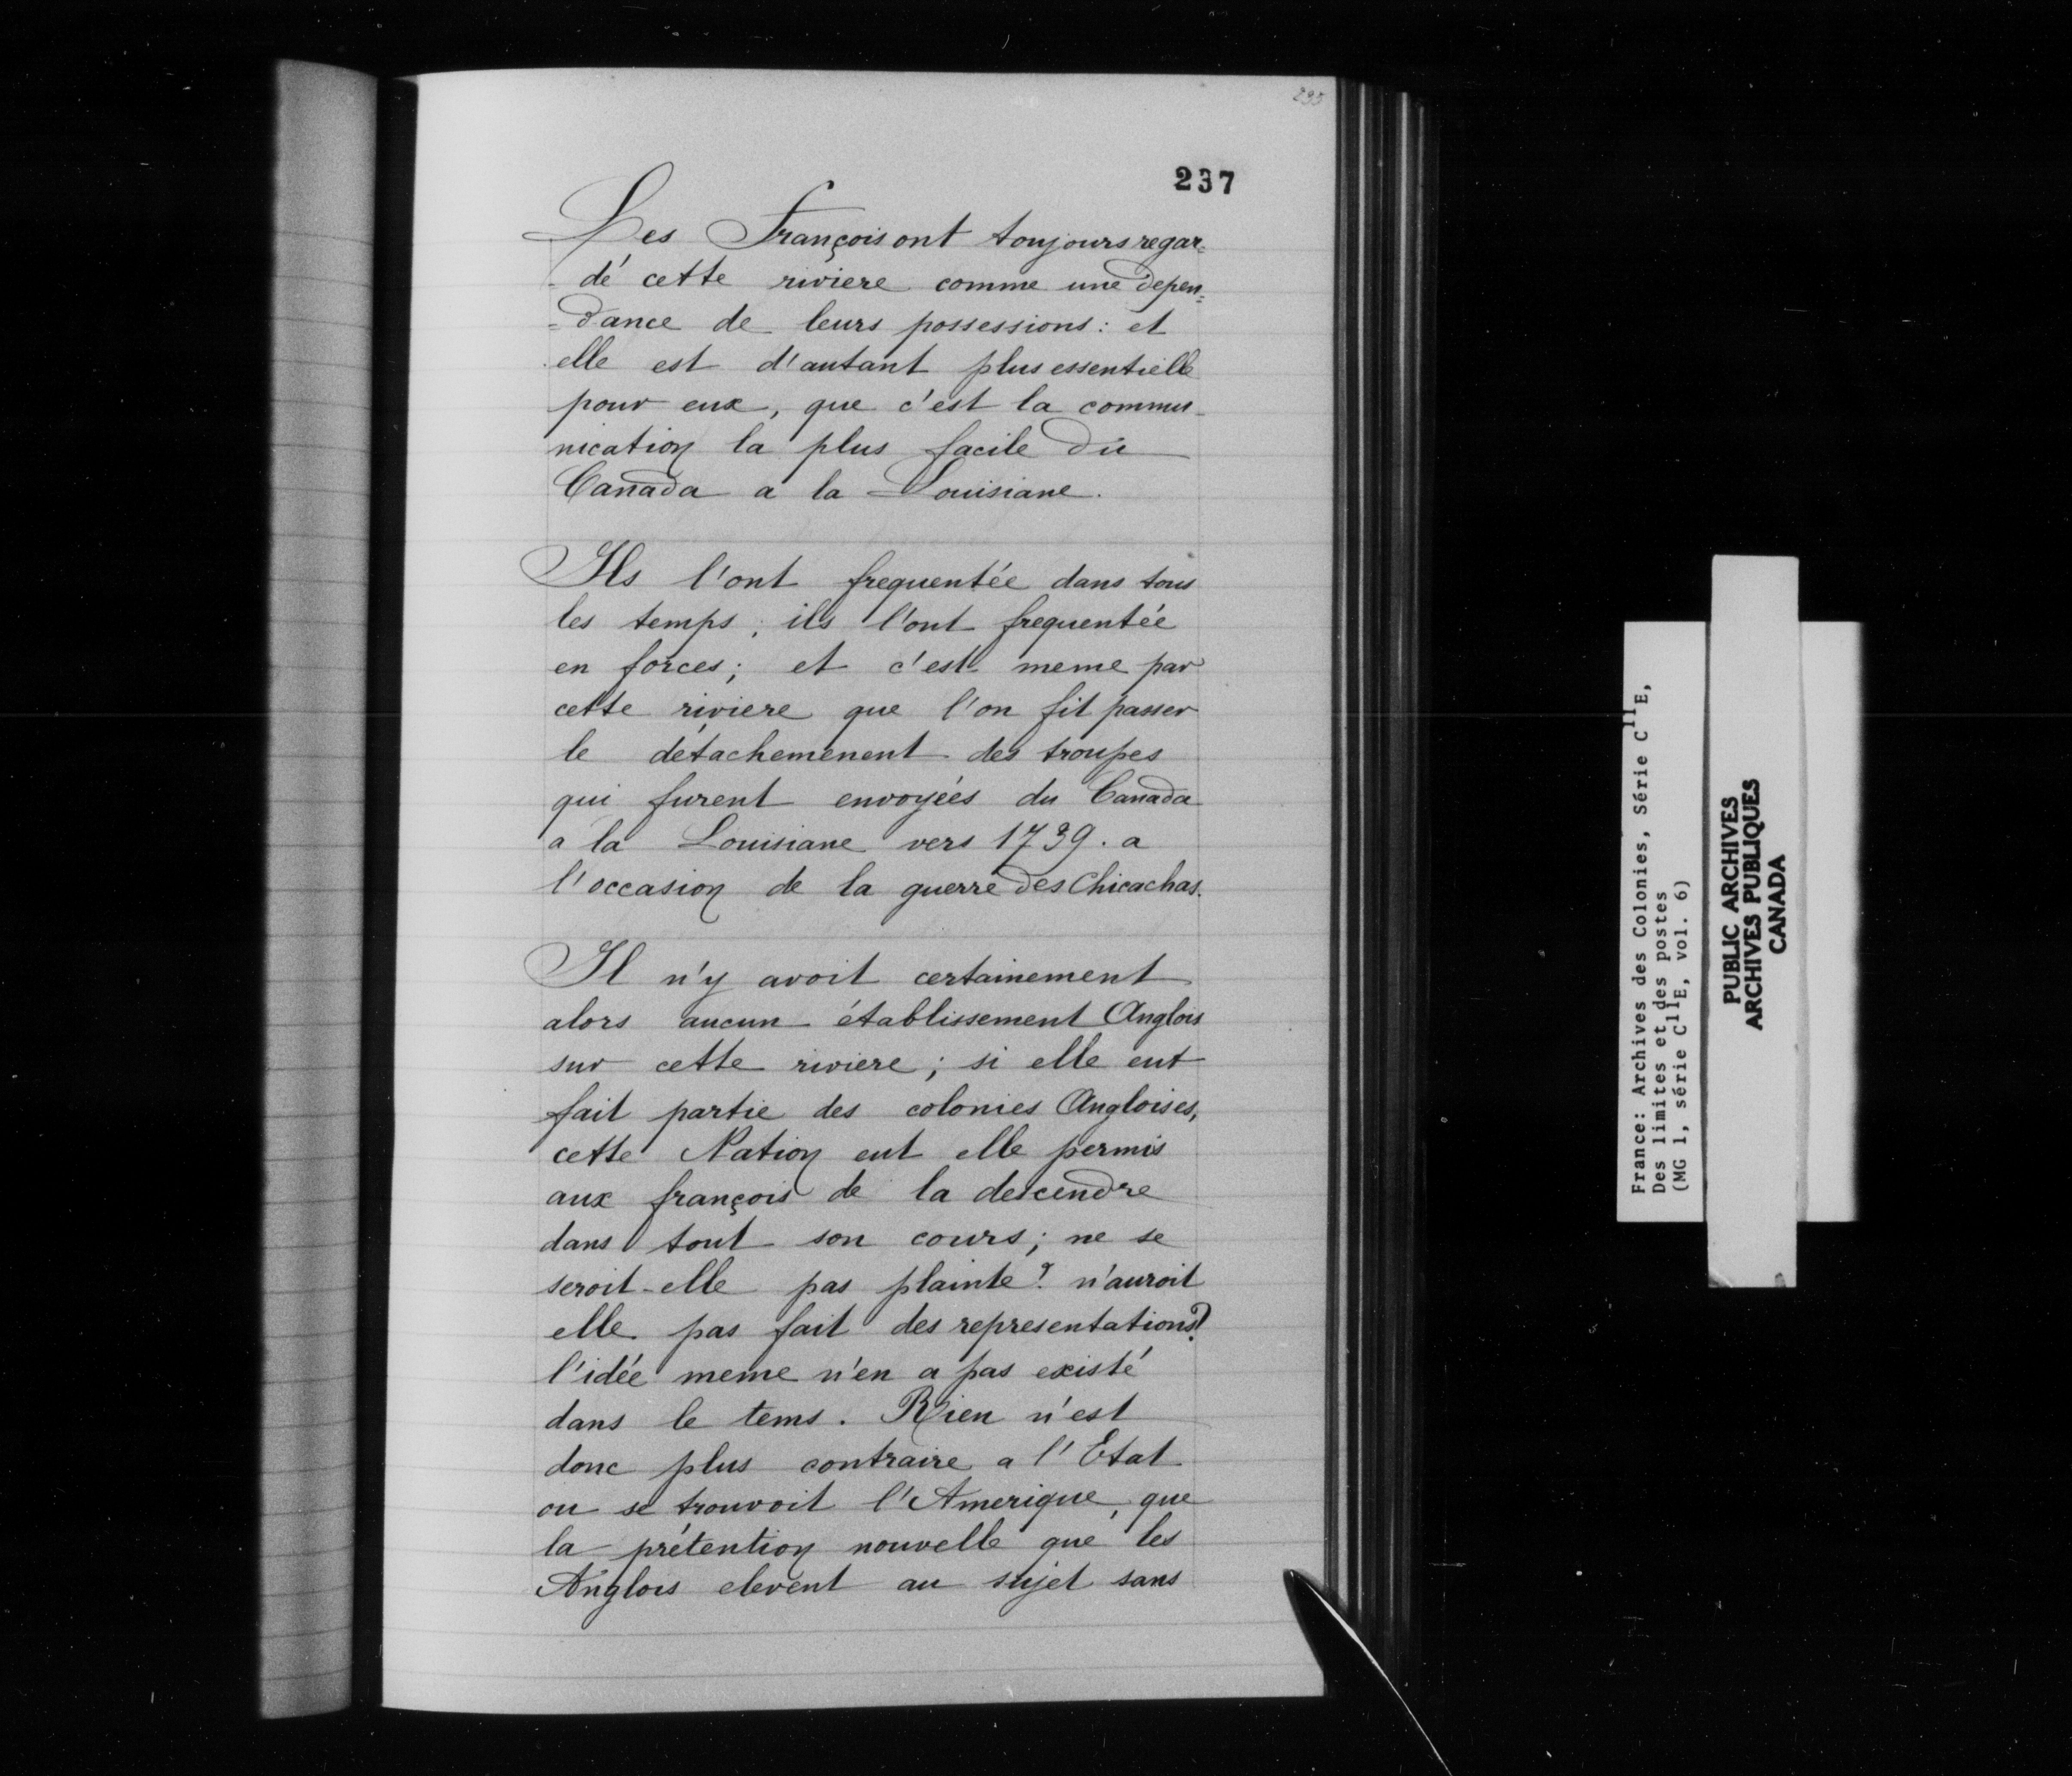 237
Les François ont toujours regar-
-dé cette riviere comme une depen=
=dance de leurs possessions: et
elle est d'autant plus essentielle
pour eux, que c'est la commu-
nication la plus facile du
Canada a la Louisiane.
Ils l'ont frequentée dans tous
les temps; ils l'ont frequentée
en forces; et c'est meme par
cette riviere que l'on fit passer
le détachemenent des troupes
qui furent envoyées du Canada
a la Louisiane vers 1739. a
l'occasion de la guerre des Chicachas.
Il n'y avoit certainement
alors aucun établissement Anglois
sur cette riviere; si elle eut
fait partie des colonies Angloises,
cette Nation eut elle permis
aux françois de la descendre
dans tout son cours; ne se
seroit-elle pas plainte? n'auroit
elle pas fait des representations?
l'idée meme n'en a pas existé
dans le tems. Rien n'est
donc plus contraire a l'Etat
ou se trouvoit l'Amerique, que
la prétention nouvelle que les
Anglois elevent au sujet sans
France: Archives des Colonies, Série C11E,
Des limites et des postes
(MG 1, série C11E, vol. 6)
PUBLIC ARCHIVES
ARCHIVES PUBLIQUES
CANADA